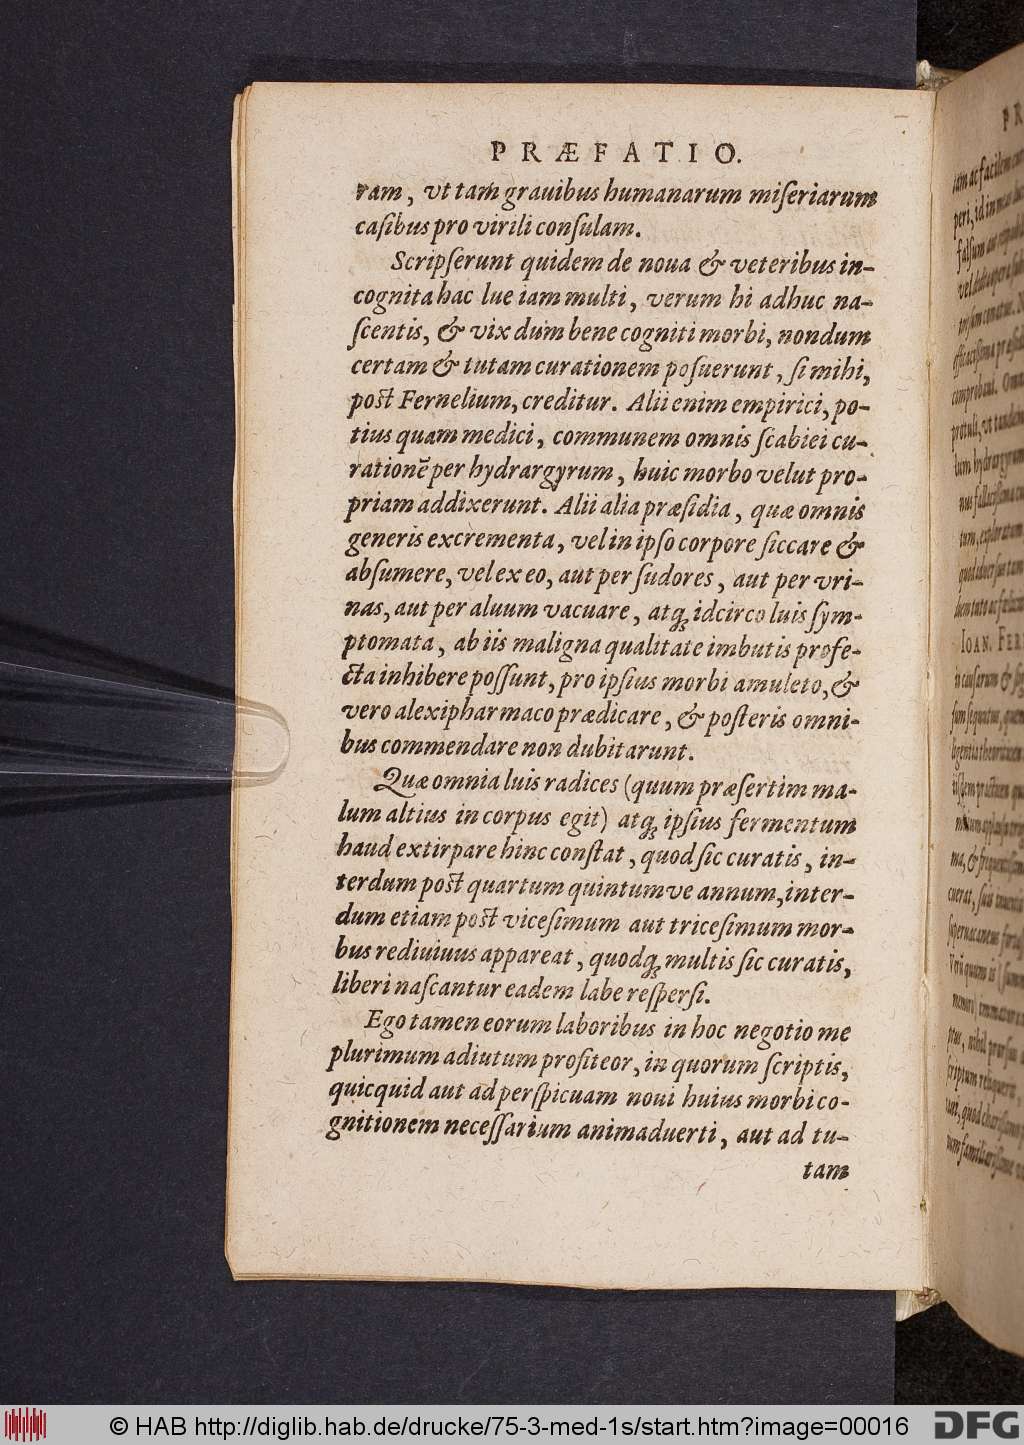 PRÆFATIO.
ram, vt tam grauibus humanarum miſeriarum
caſibus pro virili conſulam.
Scripſerunt quidem de noua & veteribus in-
cognita hac lue iam multi, verum hi adhuc na-
ſcentis, & vix dum bene cogniti morbi, nondum
certam & tutam curationem poſuerunt, ſi mihi,
poſt Fernelium, creditur. Alii enim empirici, po-
tius quam medici, communem omnis ſcabiei cu-
rationē per hydrargyrum, huic morbo velut pro-
priam addixerunt. Alii alia præſidia, quæ omnis
generis excrementa, vel in ipſo corpore ſiccare &
abſumere, vel ex eo, aut per ſudores, aut per vri-
nas, aut per aluum vacuare, atq; idcirco luis ſym-
ptomata, ab iis maligna qualitate imbutis profe-
cta inhibere poſſunt, pro ipſius morbi amuleto, &
vero alexipharmaco prædicare, & poſteris omni-
bus commendare non dubitarunt.
Quæ omnia luis radices (quum præſertim ma-
lum altius in corpus egit) atq; ipſius fermentum
haud extirpare hinc conſtat, quod ſic curatis, in-
terdum poſt quartum quintumve annum, inter-
dum etiam poſt viceſimum aut triceſimum mor-
bus rediuiuus appareat, quodq; multis ſic curatis,
liberi naſcantur eadem labe reſperſi.
Ego tamen eorum laboribus in hoc negotio me
plurimum adiutum profiteor, in quorum ſcriptis,
quicquid aut ad perſpicuam noui huius morbi co-
gnitionem neceſſarium animaduerti, aut ad tu-
tam
© HAB http://diglib.hab.de/drucke/75-3-med-1s/start.htm?image=00016
DFG